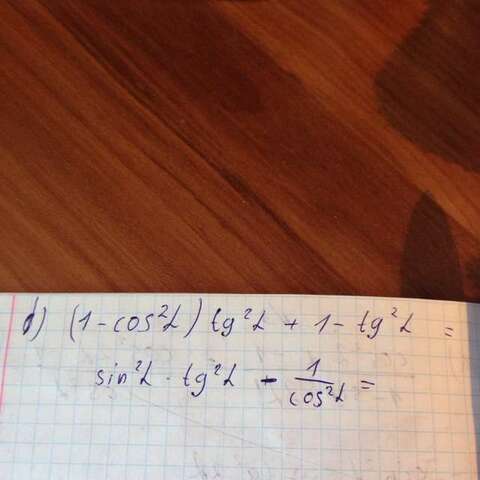 б) (1 - cos²α) tg²α + 1 - tg²α =
sin²α · tg²α - 1/cos²α =